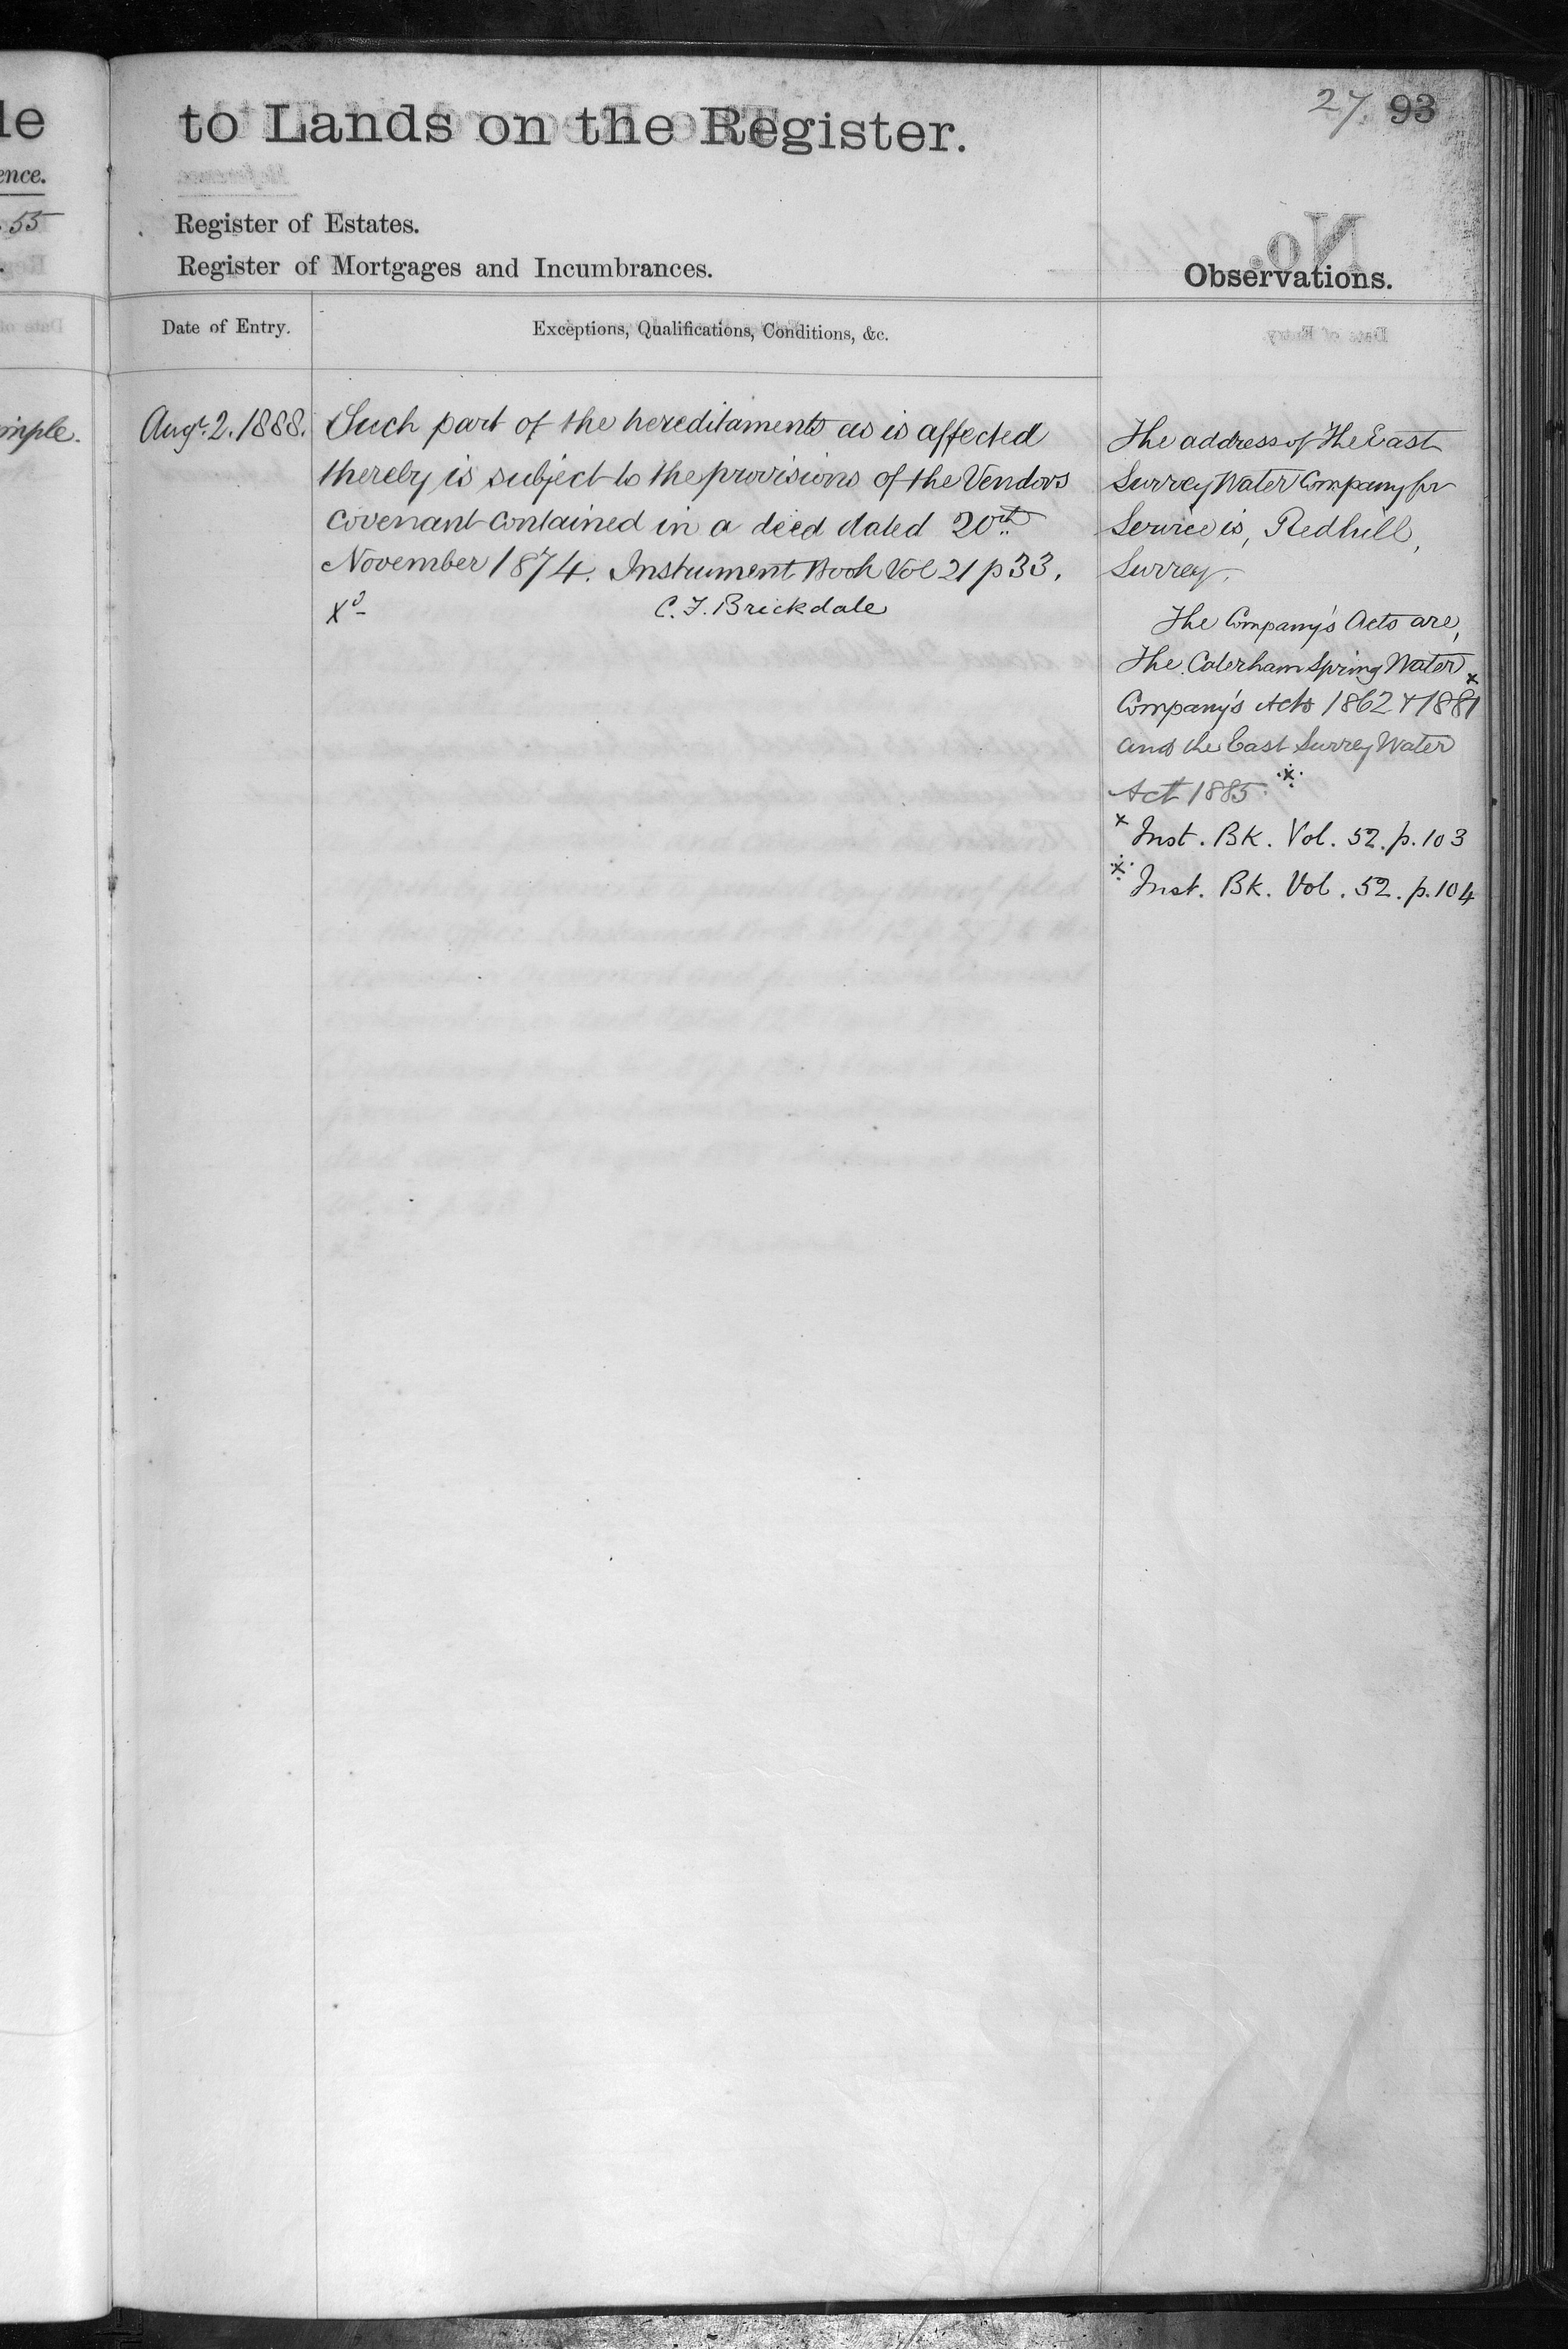 le
ence.
55
imple.
27. 93
to Lands on the Register.
Register of Estates.
Register of Mortgages and Incumbrances.
Observations.
Date of Entry.
Exceptions, Qualifications, Conditions, &c.
Augt. 2. 1888.
Such part of the hereditaments as is affected
thereby is subject to the provisions of the Vendors
covenant contained in a deed dated 20th
November 1874. Instrument Book Vol 21 p 33.
C. F. Brickdale
The address of The East
Surrey Water Company for
Service is, Redhill,
Surrey.
The Company's Acts are,
The Caterham Spring Water
Company's Acts 1862 & 1881 x
and the East Surrey Water
Act 1885. ※
x Inst. Bk. Vol. 52. p. 103
※ Inst. Bk. Vol. 52. p. 104